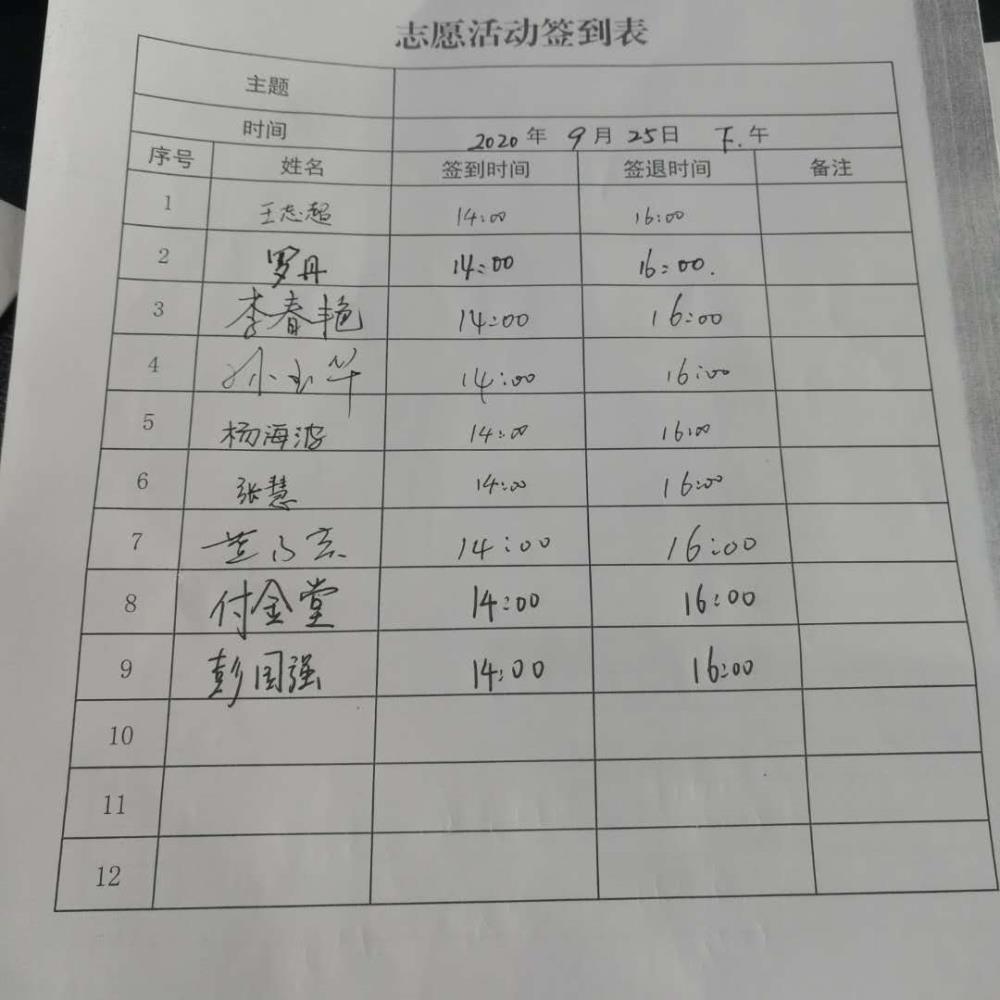 志愿活动签到表
主题
时间 2020年 9月 25日 下.午
序号 姓名 签到时间 签退时间 备注
1 王志超 14:00 16:00
2 罗丹 14:00 16:00.
3 李春艳 14:00 16:00
4 孙玉华 14:00 16:00
5 杨海波 14:00 16:00
6 张慧 14:00 16:00
7 14:00 16:00
8 付金堂 14:00 16:00
9 彭国强 14:00 16:00
10
11
12